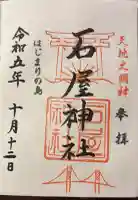 天地大明神
奉拝
石屋神社
はじまりの島
令和五年 十月十二日